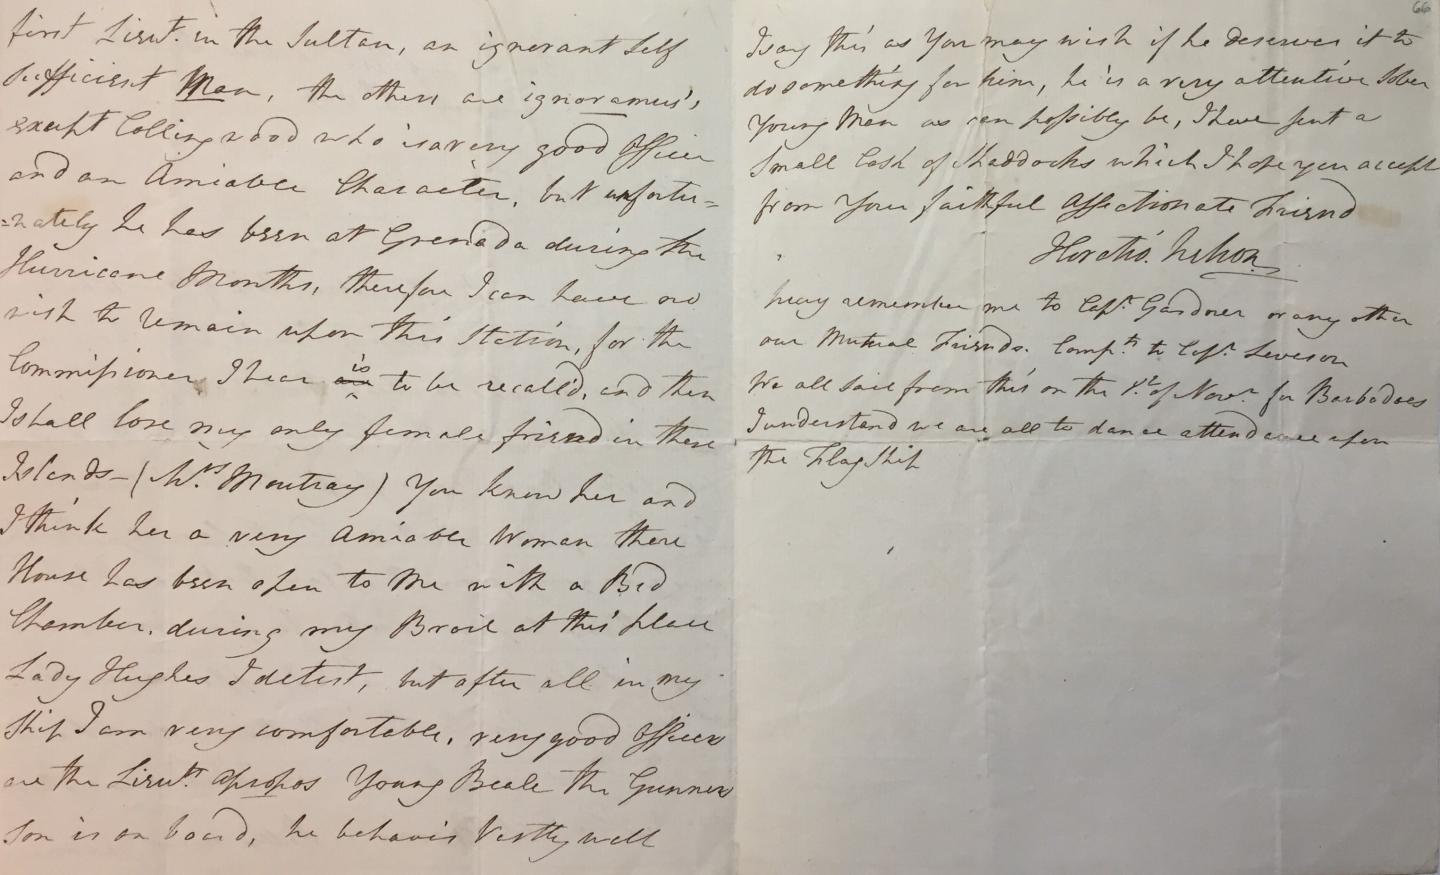 first Lieut. in the Sultan, an ignorant Self
sufficient Man, the others are ignoramus's,
except Collingwood who is a very good Officer
and an Amiable Character, but unfortu=
=nately he has been at Grenada during the
Hurricane Months, therefore I can have no
wish to remain upon this Station, for the
Commissioner I hear are is to be recalled, and then
I shall lose my only female friend in these
Islands - (Mrs. Moutray) You know her and
I think her a very Amiable Woman there
House has been open to me with a Bed
Chamber, during my Broil at this place
Lady Hughes I detest, but after all in my
Ship I am very comfortable, very good Officers
are the Lieuts. apropos Young Beale the Gunners
Son is on board, he behavis Vastly well
66
I say this as You may wish if he deserves it to
do something for him, he is a very attentive Sober
Young Man as can possibly be, I have sent a
Small Cask of Shaddocks which I hope you accept
from Your faithful Affectionate Friend
Horatio. Nelson
pray remember me to Capt. Gardner or any other
our Mutual Friends. Compts. to Capt. Leveson
We all Sail from this on the 1st. of Novr. for Barbadoes
I understand we are all to dance attendance upon
the Flag Ship